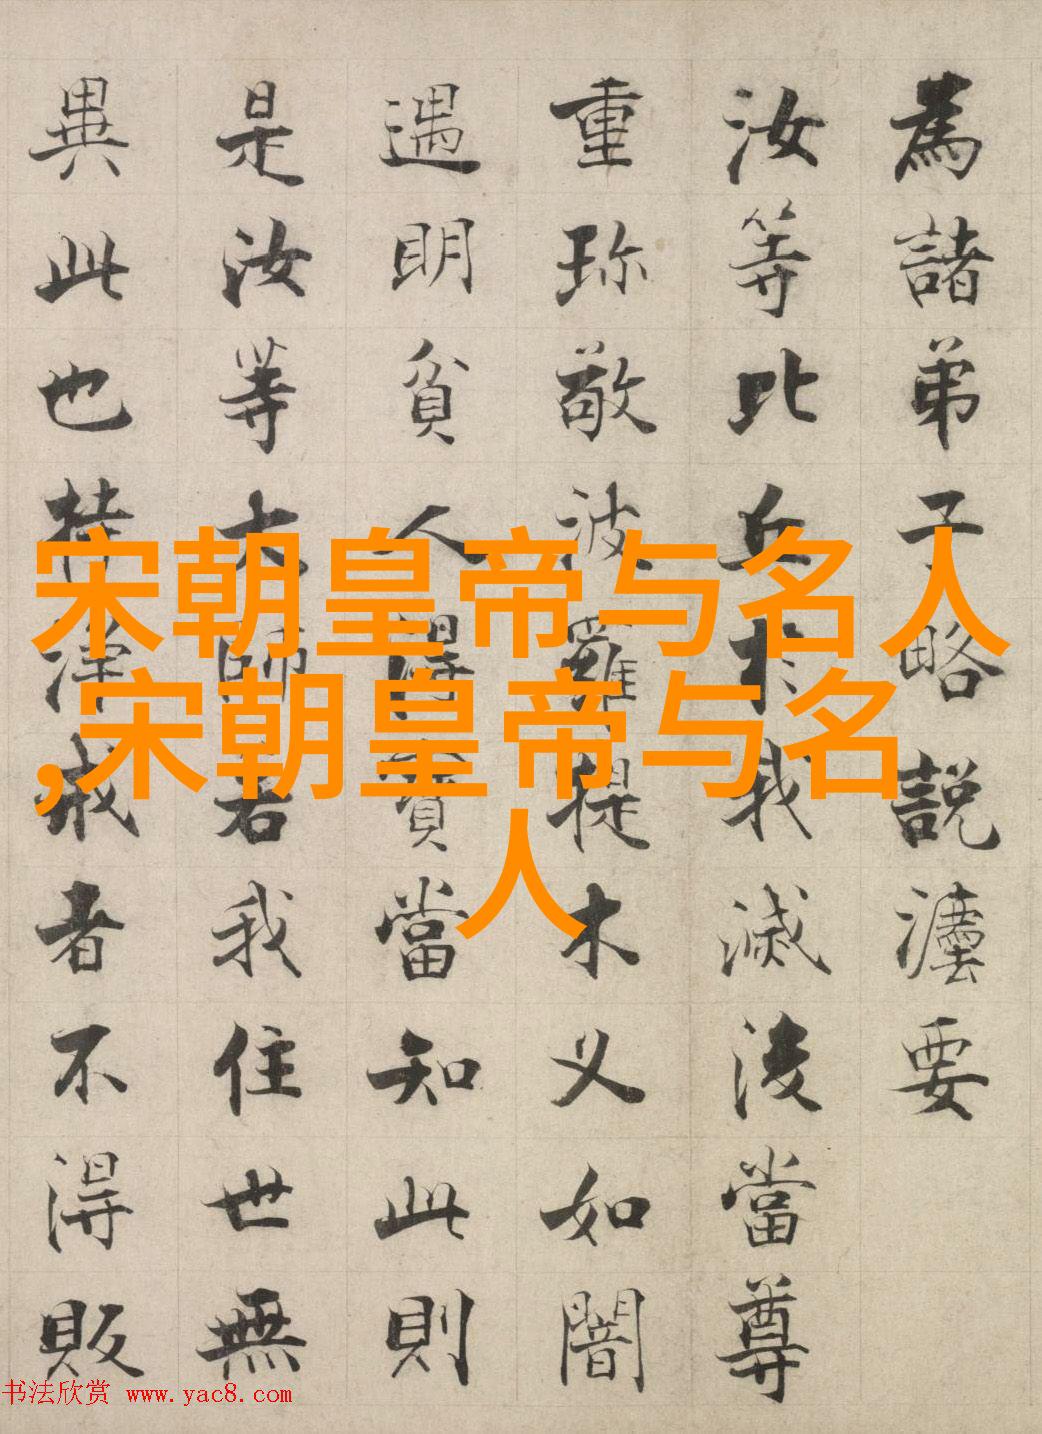 為諸弟子略說灋要
汝等比丘於我滅後當尊
重珎敬波羅提木叉如闇
遇明貧人得寶當知此則
是汝等大師若我住世無
異此也持淨戒者不得販
宋朝皇帝与名人
,宋朝皇帝与名
人
书法欣赏 www.yac8.com